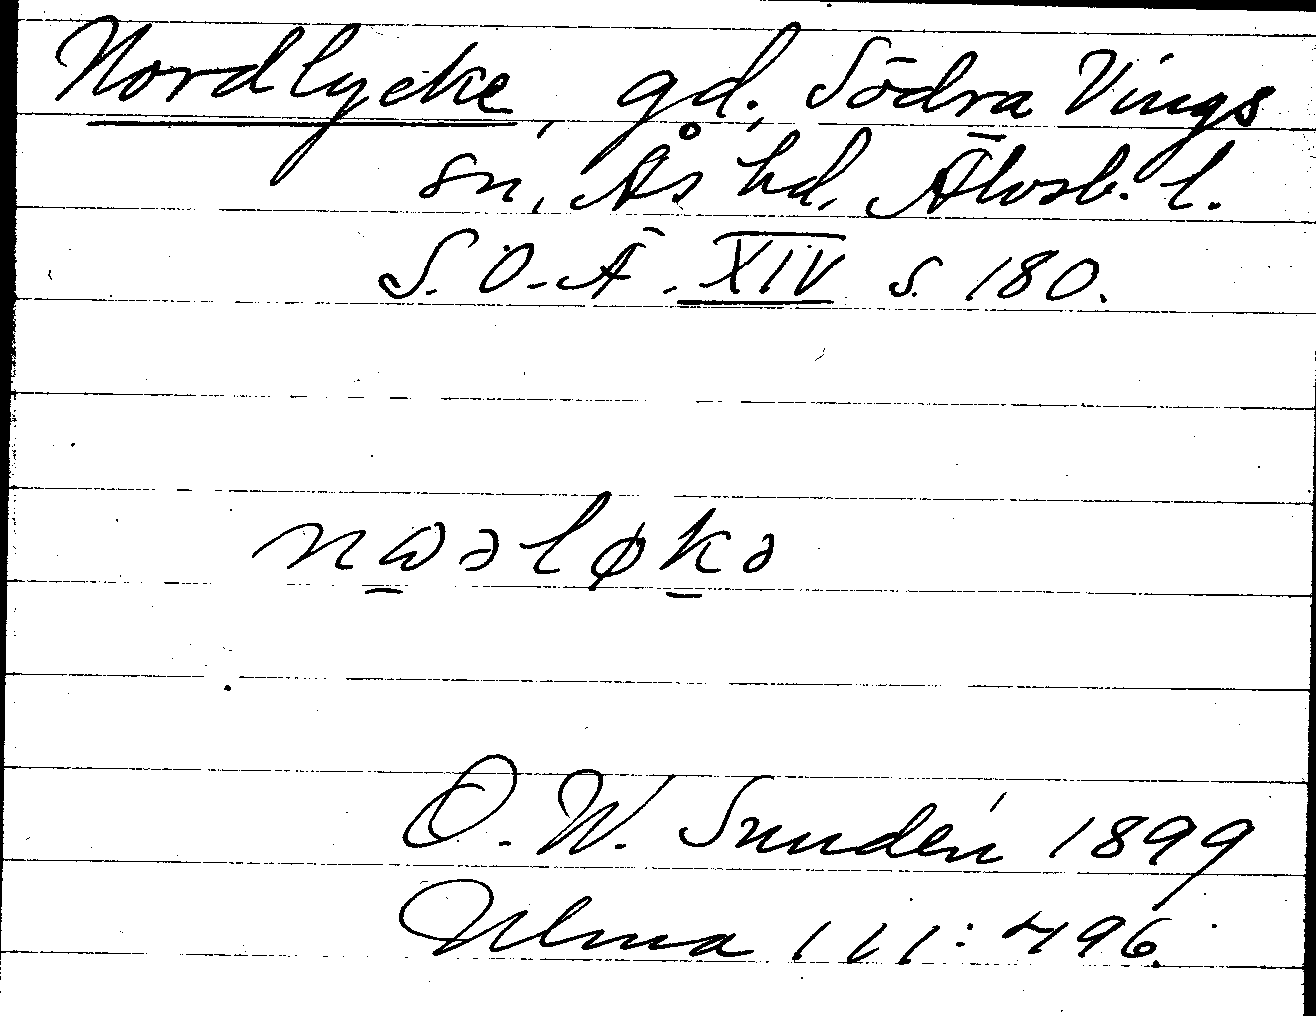 Nordlycke, gd, Södra Vings
sn, Ås hd, Älvsb. l.
S.O.Ä. XIV s. 180.
nɷəløkə
O. W. Sundén 1899
Ulma 111:496.